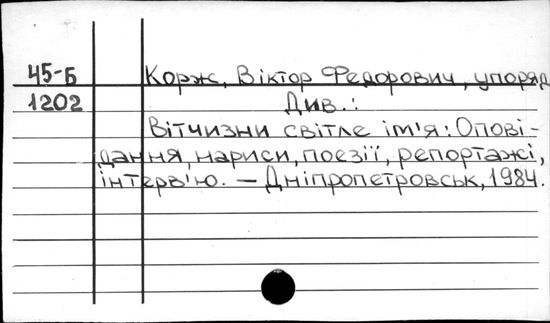 45-Б Корж, Віктор Федорович, упоряд
1202 Див.:
Вітчизни світле ім'я: Опові-
дання, нариси, поезії, репортажі,
інтерв'ю. — Дніпропетровськ, 1984.